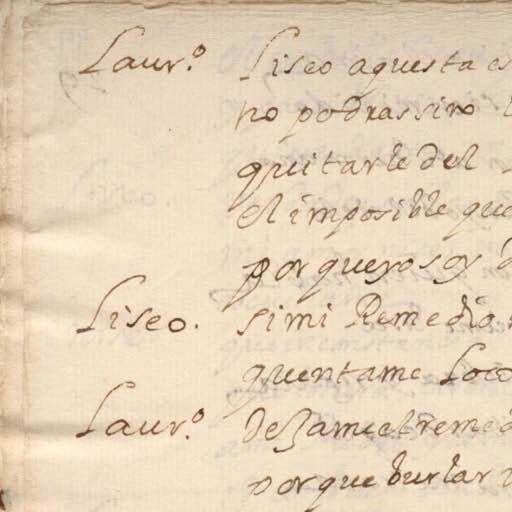 Laur.º Liseo aquesta es
no podrassino
quitarle del
el imposible que
por queyosoy
Liseo. simi Remedio
quentame Loco
Laur.º dexame el remed
porque burlar